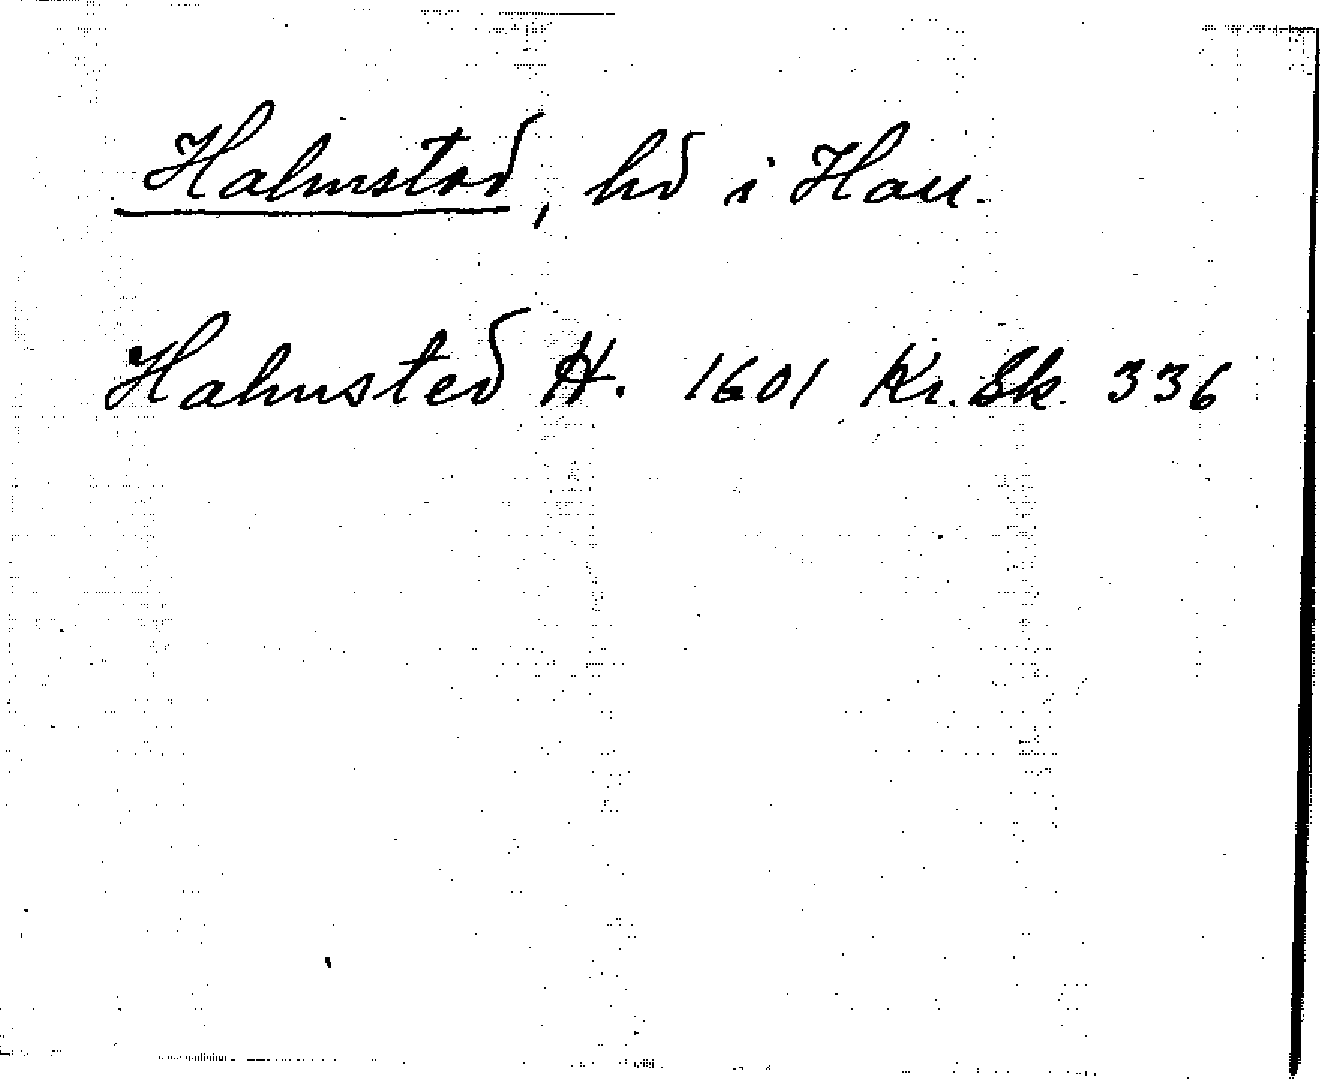 Halmstad, hd i Hall.
Halmsted H. 1601 Kr. Sk. 336